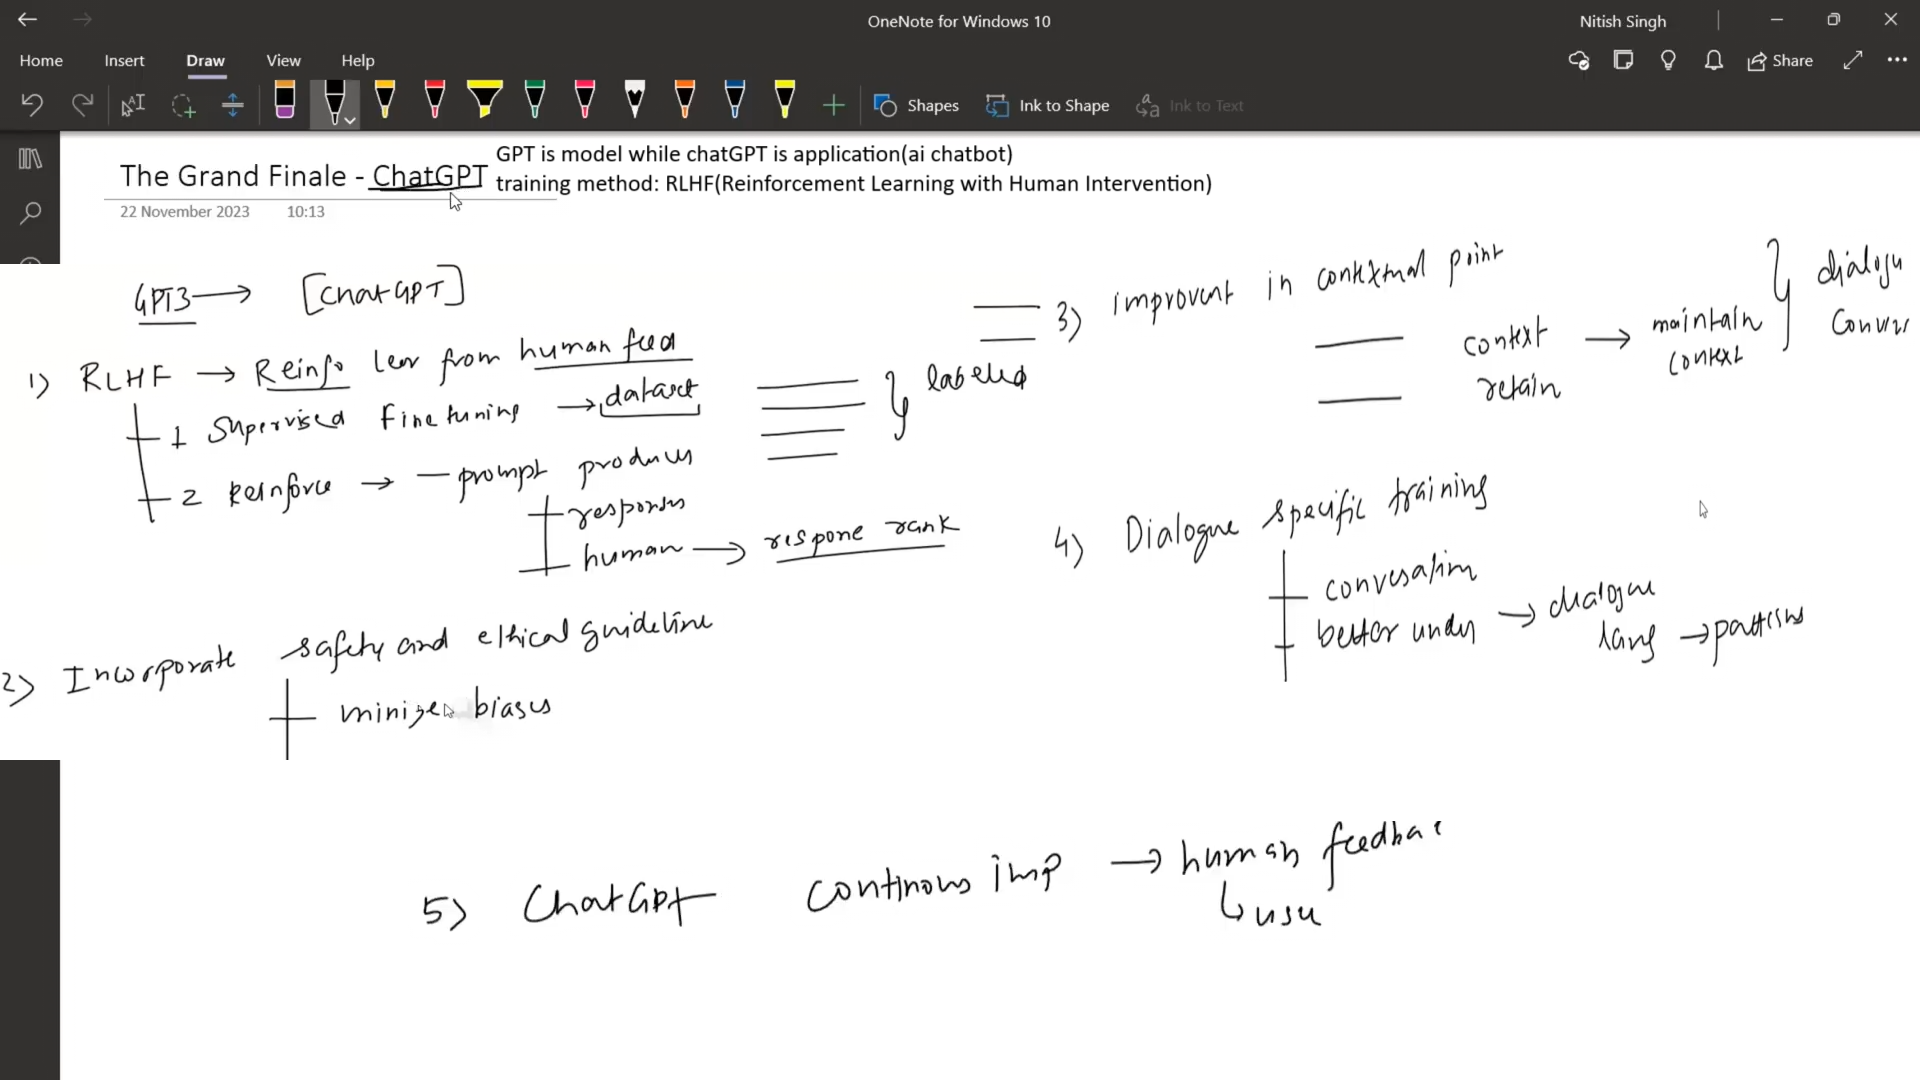 OneNote for Windows 10
Nitish Singh
Home Insert Draw View Help
Share
Shapes Ink to Shape Ink to Text
The Grand Finale - ChatGPT
GPT is model while chatGPT is application(ai chatbot)
training method: RLHF(Reinforcement Learning with Human Intervention)
22 November 2023 10:13
GPT3 → [ChatGPT]
1) RLHF → Reinfo lear from human feed
1 Supervised finetuning → dataset
labeled
2 Reinforce → — prompt produces
responses
human → respone rank
2) Incorporate safety and ethical guideline
minize biases
3) improvent in contextual point
context → maintain
retain context
dialogu
Conver
4) Dialogue specific training
conversation
better under → dialogue
lang → patterns
5) ChatGPT continous imp → human feedbac
↳ use